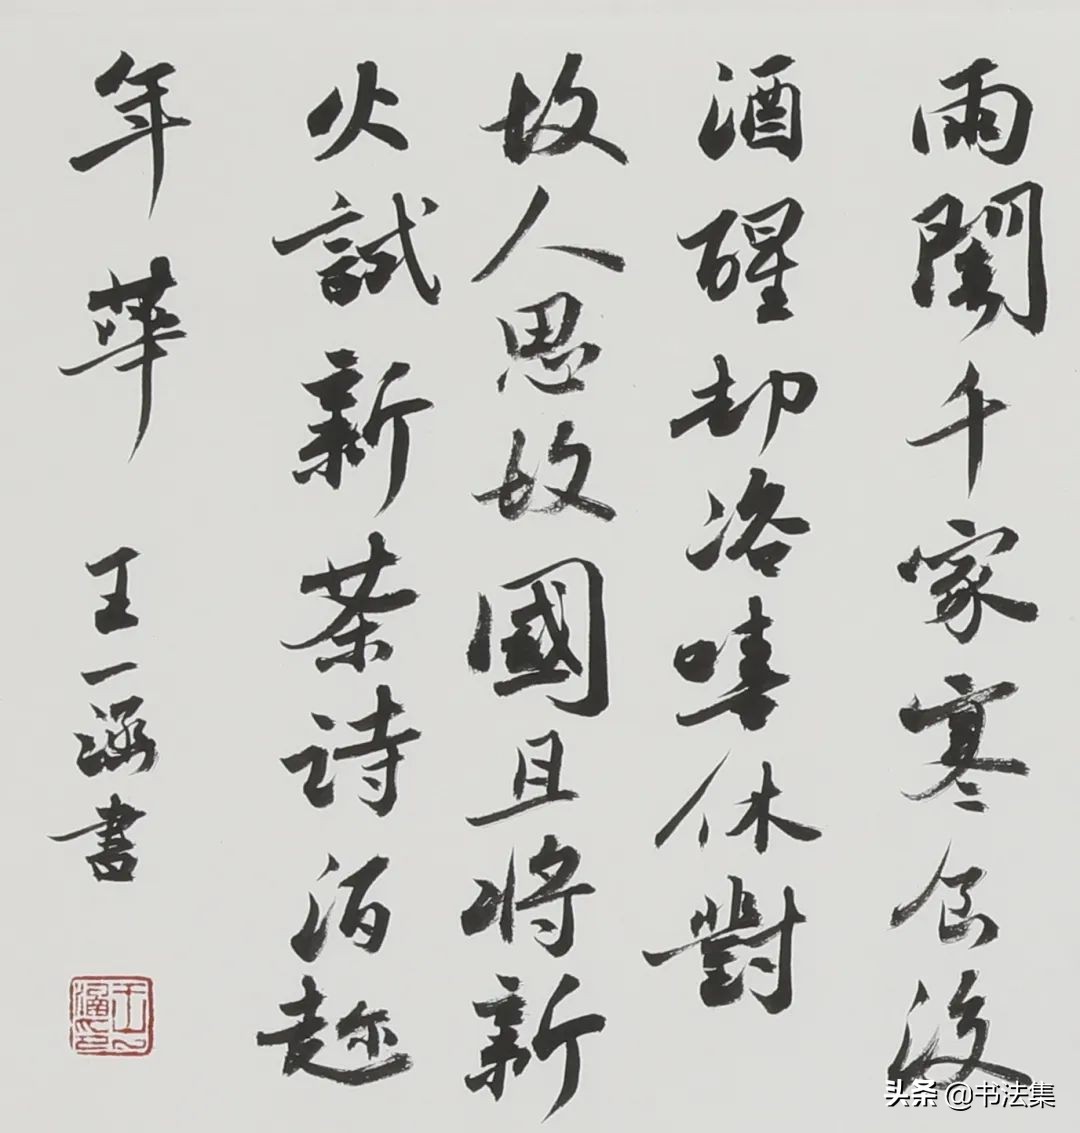 雨闇千家寒食後
酒醒却咨嗟休對
故人思故國且將新
火試新茶詩酒趂
年華
王一涵書
王一涵印
头条 @书法集